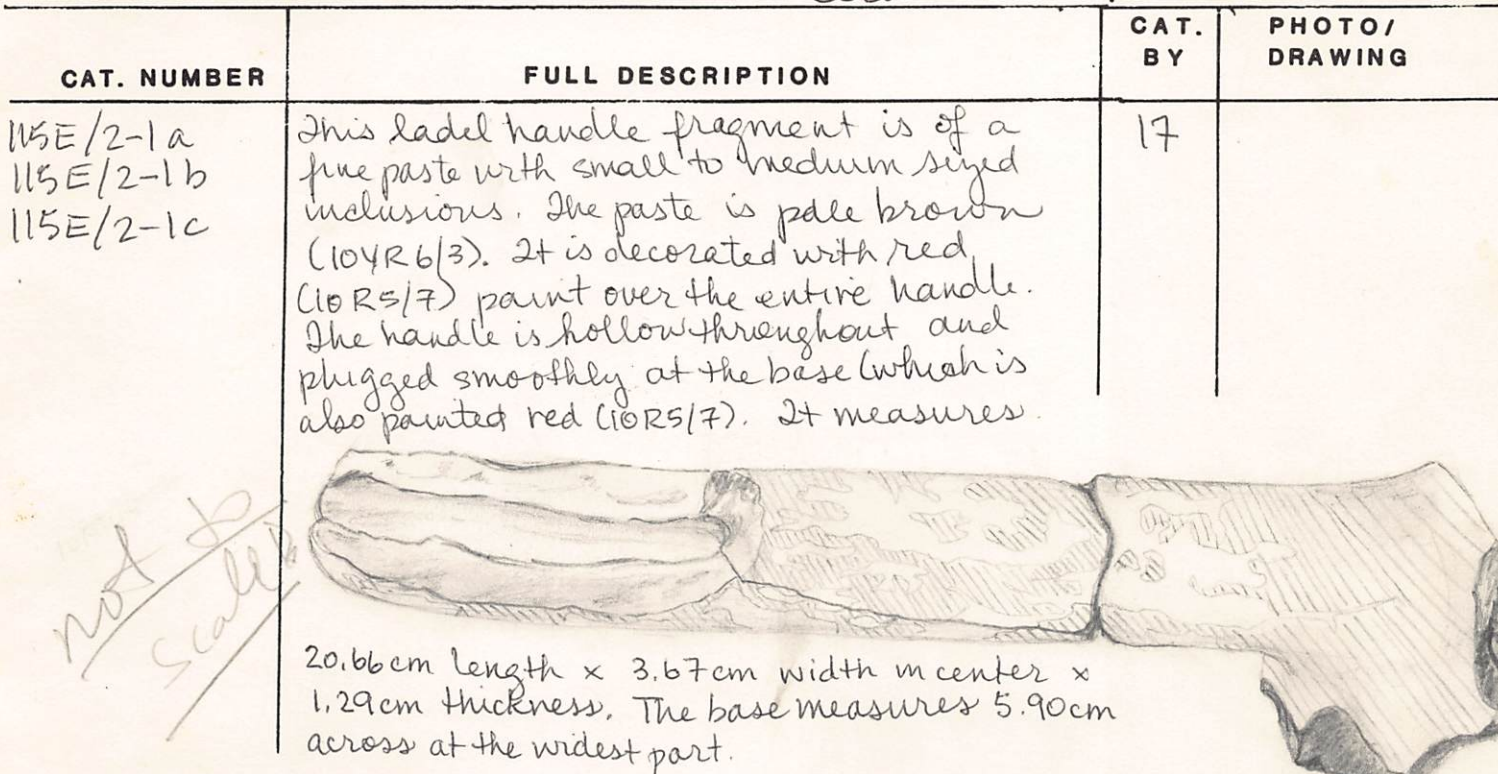 CAT. NUMBER
FULL DESCRIPTION
CAT.
BY
PHOTO/
DRAWING
115E/2-1a
115E/2-1b
115E/2-1c
This ladel handle fragment is of a
fine paste with small to medium sized
inclusions. The paste is pale brown
(10YR6/3). It is decorated with red
(10R5/7) paint over the entire handle.
The handle is hollow throughout and
plugged smoothly at the base (which is
also painted red (10R5/7). It measures
17
not to
scale
20.66cm length x 3.67cm width in center x
1.29cm thickness. The base measures 5.90cm
across at the widest part.